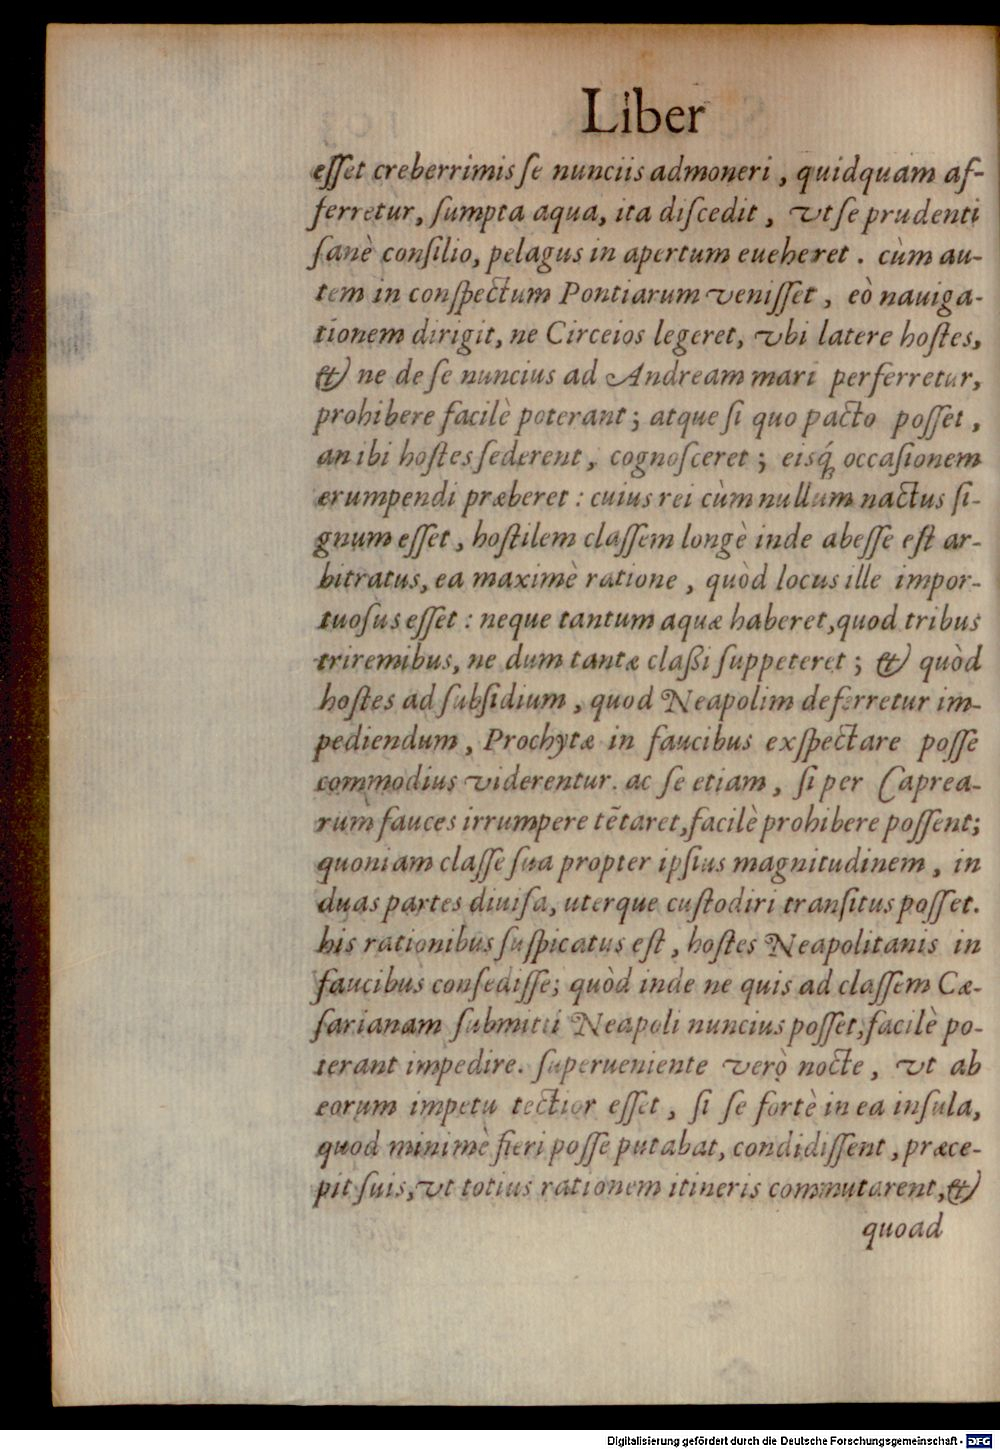 Liber
eſſet creberrimis ſe nunciis admoneri, quidquam af-
ferretur, ſumpta aqua, ita diſcedit, vt ſe prudenti
ſanè conſilio, pelagus in apertum eueheret. cùm au-
tem in conſpectum Pontiarum veniſſet, eò nauiga-
tionem dirigit, ne Circeios legeret, vbi latere hoſtes,
& ne de ſe nuncius ad Andream mari perferretur,
prohibere facilè poterant; atque ſi quo pacto poſſet,
an ibi hoſtes ſederent, cognoſceret; eisq́; occaſionem
erumpendi præberet: cuius rei cùm nullum nactus ſi-
gnum eſſet, hoſtilem claſſem longè inde abeſſe eſt ar-
bitratus, ea maximè ratione, quòd locus ille impor-
tuoſus eſſet: neque tantum aquæ haberet, quod tribus
triremibus, ne dum tantæ claßi ſuppeteret; & quòd
hoſtes ad ſubſidium, quod Neapolim deferretur im-
pediendum, Prochytæ in faucibus exſpectare poſſe
commodius viderentur. ac ſe etiam, ſi per Caprea-
rum fauces irrumpere tẽtaret, facilè prohibere poſſent;
quoniam claſſe ſua propter ipſius magnitudinem, in
duas partes diuiſa, uterque cuſtodiri tranſitus poſſet.
his rationibus ſuſpicatus eſt, hoſtes Neapolitanis in
faucibus conſediſſe; quòd inde ne quis ad claſſem Cæ-
ſarianam ſubmitti Neapoli nuncius poſſet, facilè po-
terant impedire. ſuperueniente verò nocte, vt ab
eorum impetu tectior eſſet, ſi ſe fortè in ea inſula,
quod minimè fieri poſſe putabat, condidiſſent, præce-
pit ſuis, vt totius rationem itineris commutarent, &
quoad
Digitalisierung gefördert durch die Deutsche Forschungsgemeinschaft - DFG